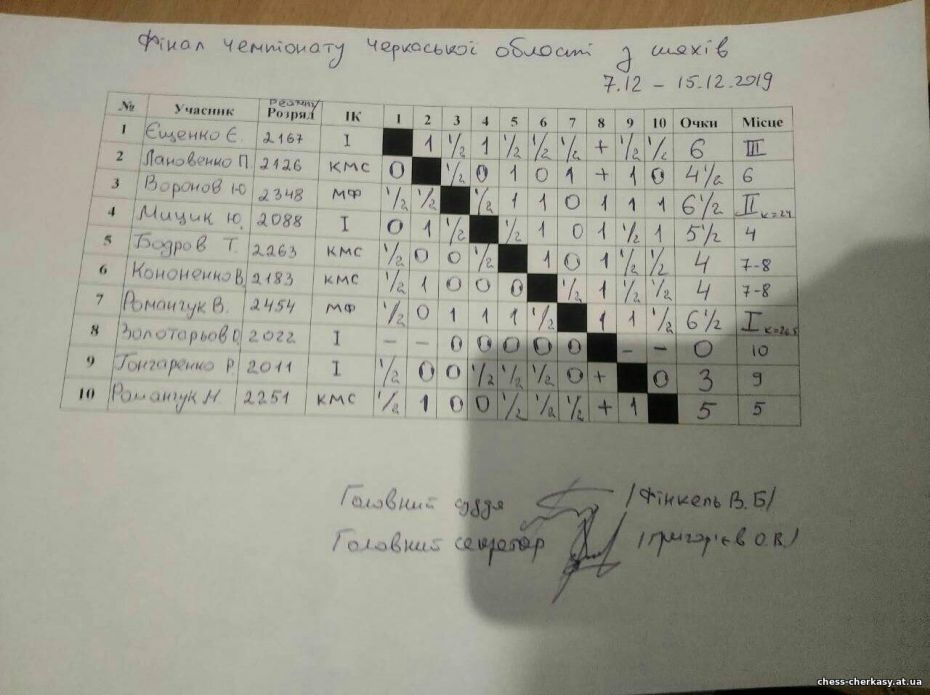 Фінал чемпіонату Черкаської області з шахів
7.12 – 15.12.2019
№ Учасник Рейтинг Розряд ІК 1 2 3 4 5 6 7 8 9 10 Очки Місце
1 Єщенко Є. 2167 I 1 1/2 1 1/2 1/2 1/2 + 1/2 1/2 6 III
2 Лановенко П. 2126 КМС 0 1/2 0 1 0 1 + 1 0 4 1/2 6
3 Воронов Ю 2348 МФ 1/2 1/2 1/2 1 1 0 1 1 1 6 1/2 II к=24
4 Мицик Ю. 2088 I 0 1 1/2 1/2 1 0 1 1/2 1 5 1/2 4
5 Бодров Т. 2263 КМС 1/2 0 0 1/2 1 0 1 1/2 1/2 4 7-8
6 Кононенко В. 2183 КМС 1/2 1 0 0 0 1/2 1 1/2 1/2 4 7-8
7 Романчук В. 2454 МФ 1/2 0 1 1 1 1/2 1 1 1/2 6 1/2 I к=26.5
8 Золотарьов О 2022 I – – 0 0 0 0 0 – – 0 10
9 Гончаренко Р. 2011 I 1/2 0 0 1/2 1/2 1/2 0 + 0 3 9
10 Романчук М 2251 КМС 1/2 1 0 0 1/2 1/2 1/2 + 1 5 5
Головний суддя /Фінкель В.Б/
Головний секретар /Григор'єв О.В./
chess-cherkasy.at.ua